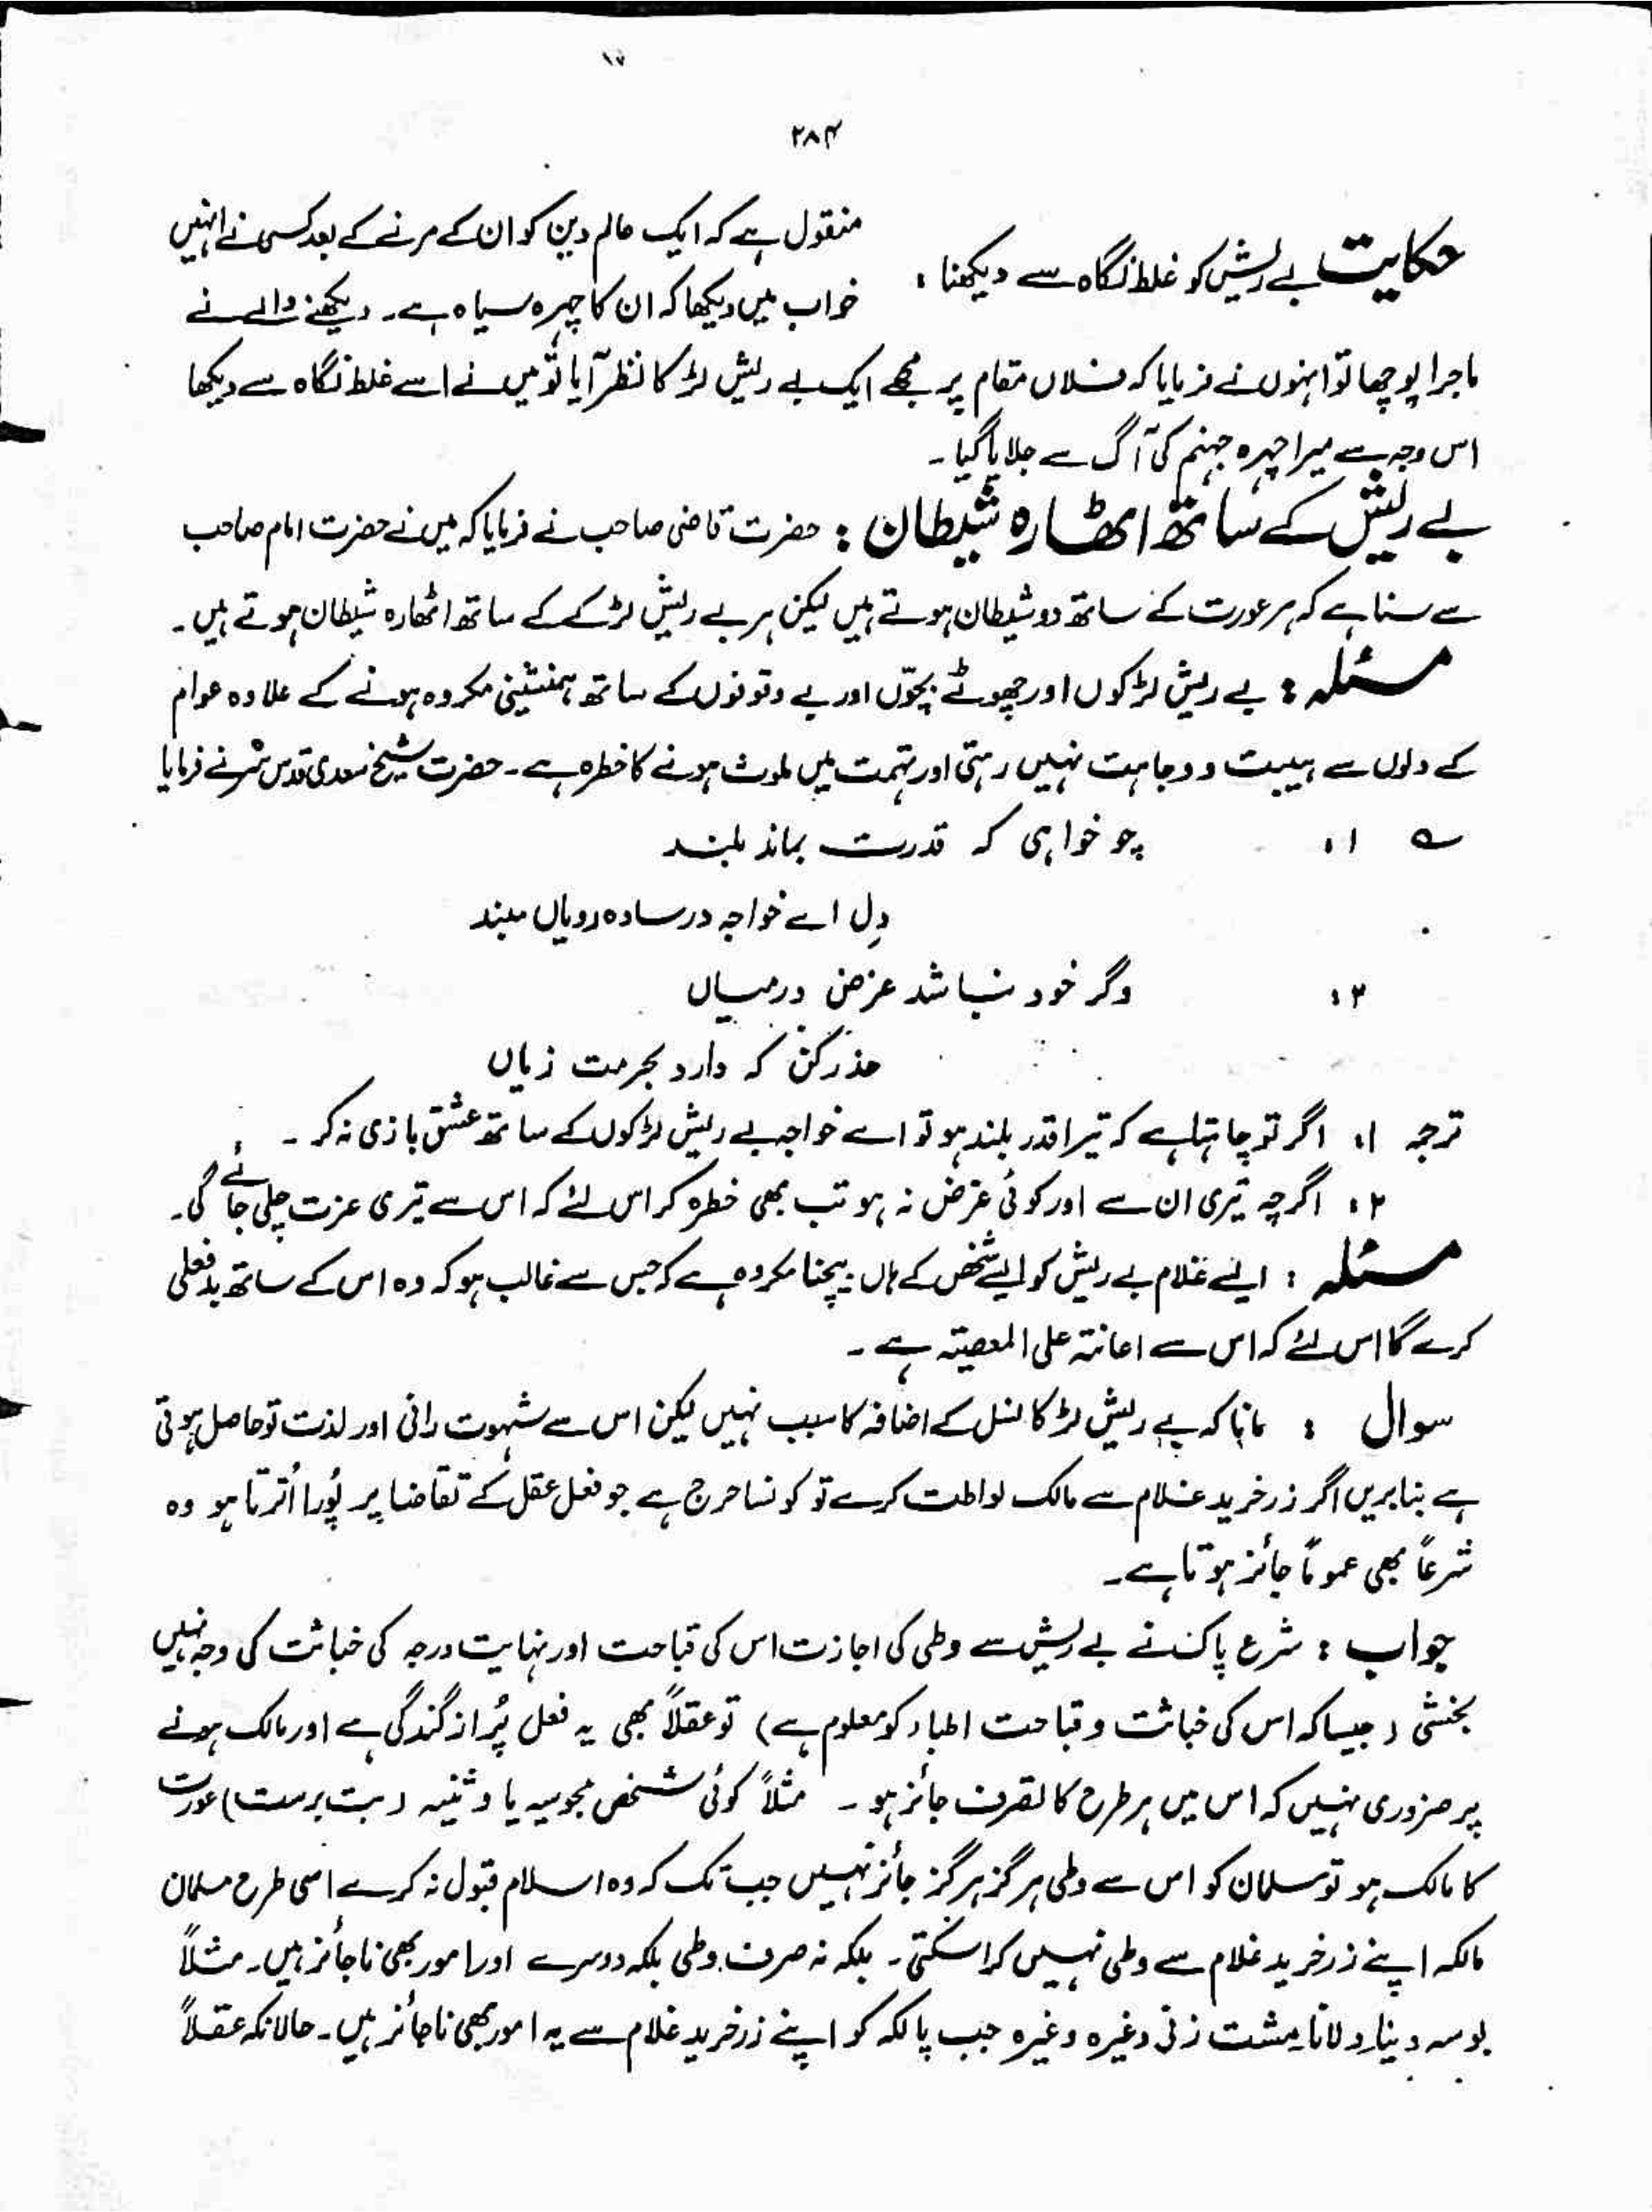 ۲۸۴
حکایت بے ریش کو غلط نگاہ سے دیکھنا :
منقول ہے کہ ایک عالم دین کو ان کے مرنے کے بعد کسی نے انہیں
خواب میں دیکھا کہ ان کا چہرہ سیاہ ہے۔ دیکھنے والے نے
ماجرا پوچھا تو انہوں نے فرمایا کہ فلاں مقام پر مجھے ایک بے ریش لڑکا نظر آیا تو میں نے اسے غلط نگاہ سے دیکھا
اس وجہ سے میرا چہرہ جہنم کی آگ سے جلایا گیا۔
بے ریش کے ساتھ اٹھارہ شیطان : حضرت قاضی صاحب نے فرمایا کہ میں نے حضرت امام صاحب
سے سنا ہے کہ ہر عورت کے ساتھ دو شیطان ہوتے ہیں لیکن ہر بے ریش لڑکے کے ساتھ اٹھارہ شیطان ہوتے ہیں۔
مسئلہ : بے ریش لڑکوں اور چھوٹے بچّوں اور بے وقوفوں کے ساتھ ہمنشینی مکروہ ہونے کے علاوہ عوام
کے دلوں سے ہیبت و وجاہت نہیں رہتی اور تہمت میں ملوث ہونے کا خطرہ ہے۔ حضرت شیخ سعدی قدس سرہ نے فرمایا
؎ ۱: چو خواہی کہ قدرت بماند بلند
دِل اے خواجہ در سادہ رویاں مبند
۲: وگر خود نباشد غرض درمیاں
حذر کن کہ دارد بحرمت زیاں
ترجمہ ۱: اگر تو چاہتا ہے کہ تیرا قدر بلند ہو تو اے خواجہ بے ریش لڑکوں کے ساتھ عشق بازی نہ کر۔
۲: اگرچہ تیری ان سے اور کوئی غرض نہ ہو تب بھی خطرہ کر اس لئے کہ اس سے تیری عزت چلی جائے گی۔
مسئلہ : ایسے غلام بے ریش کو ایسے شخص کے ہاں بیچنا مکروہ ہے کہ جس سے غالب ہو کہ وہ اس کے ساتھ بدفعلی
کرے گا اس لئے کہ اس سے اعانتہ علی المعصیتہ ہے۔
سوال : مانا کہ بے ریش لڑکا نسل کے اضافہ کا سبب نہیں لیکن اس سے شہوت رانی اور لذت تو حاصل ہوتی
ہے بنا بریں اگر زرخرید غلام سے مالک لواطت کرے تو کونسا حرج ہے جو فعل عقل کے تقاضا پر پُورا اُترتا ہو وہ
شرعاً بھی عموماً جائز ہوتا ہے۔
جواب : شرع پاک نے بے ریش سے وطی کی اجازت اس کی قباحت اور نہایت درجہ کی خباثت کی وجہ نہیں
بخشی (جیسا کہ اس کی خباثت و قباحت اطباء کو معلوم ہے) تو عقلاً بھی یہ فعل پُر از گندگی ہے اور مالک ہونے
پر ضروری نہیں کہ اس میں ہر طرح کا تصرف جائز ہو۔ مثلاً کوئی شخص مجوسیہ یا وثنیہ (بت پرست) عورت
کا مالک ہو تو مسلمان کو اس سے وطی ہرگز ہرگز جائز نہیں جب تک کہ وہ اسلام قبول نہ کرے اسی طرح مسلمان
مالکہ اپنے زرخرید غلام سے وطی نہیں کرا سکتی۔ بلکہ نہ صرف وطی بلکہ دوسرے اور امور بھی ناجائز ہیں۔ مثلاً
بوسہ دینا و لانا مشت زنی وغیرہ وغیرہ جب مالکہ کو اپنے زرخرید غلام سے یہ امور بھی ناجائز ہیں۔ حالانکہ عقلاً